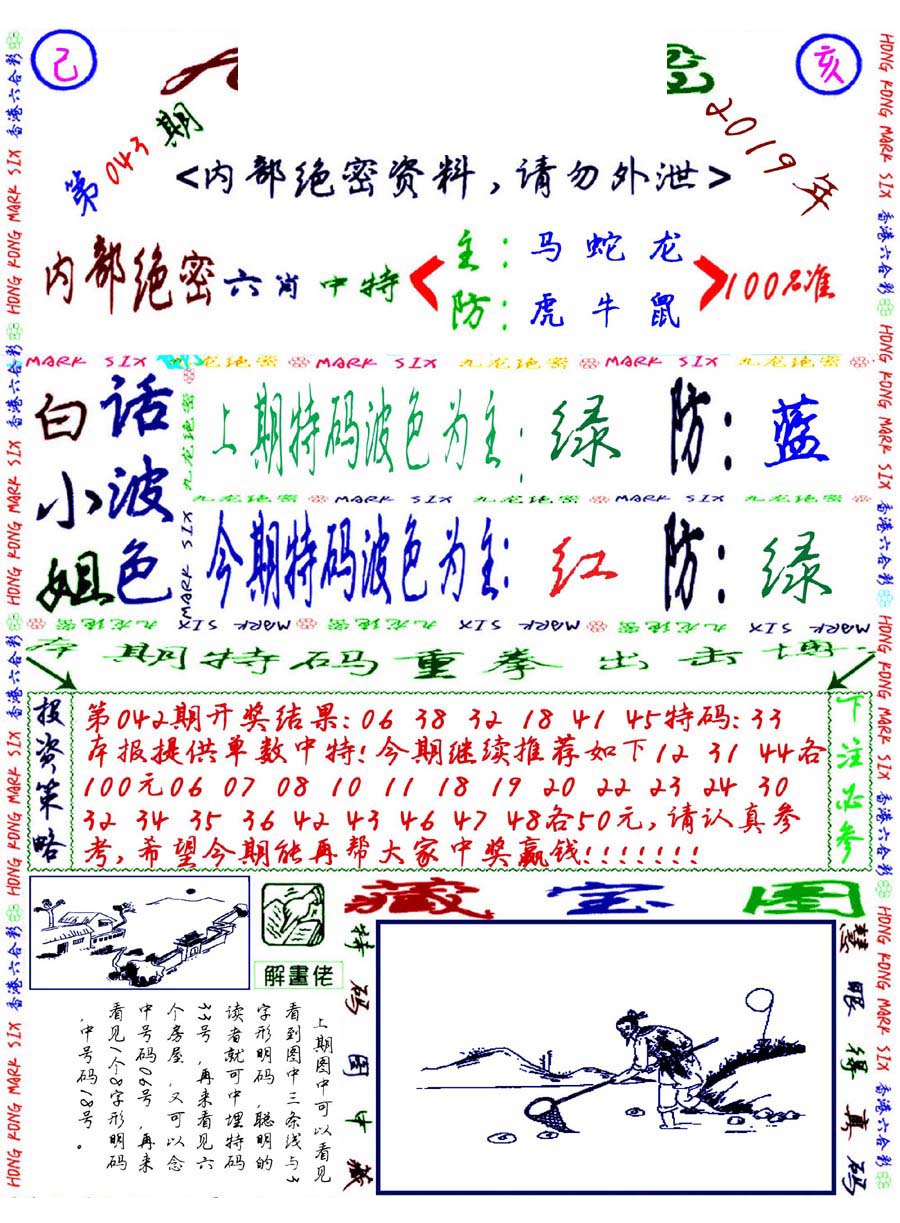 己
亥
第043期
2019年
<内部绝密资料,请勿外泄>
内部绝密六肖中特
主:马蛇龙
防:虎牛鼠
100%准
MARK SIX 九龙绝密 MARK SIX 九龙绝密 MARK SIX 九龙绝密
白小姐
话波色
上期特码波色为主:绿 防:蓝
九龙绝密 MARK SIX 九龙绝密 MARK SIX 九龙绝密
今期特码波色为主:红 防:绿
九龙绝密 MARK SIX 九龙绝密 MARK SIX 九龙绝密 MARK SIX
本期特码重拳出击博
投资策略
第042期开奖结果:06 38 32 18 41 45特码:33
本报提供单数中特!今期继续推荐如下12 31 44各
100元06 07 08 10 11 18 19 20 22 23 24 30
32 34 35 36 42 43 46 47 48各50元,请认真参
考,希望今期能再帮大家中奖赢钱!!!!!!!
下注必参
藏宝图
解畫佬
上期图中可以看见
看到图中三条线与3
字形明码,聪明的
读者就可中埋特码
33号,再来看见六
个房屋,又可以念
中号码06号,再来
看见1个8字形明码
,中号码18号。
特码图中藏
慧眼得真码
HONG KONG MARK SIX 香港六合彩
HONG KONG MARK SIX 香港六合彩